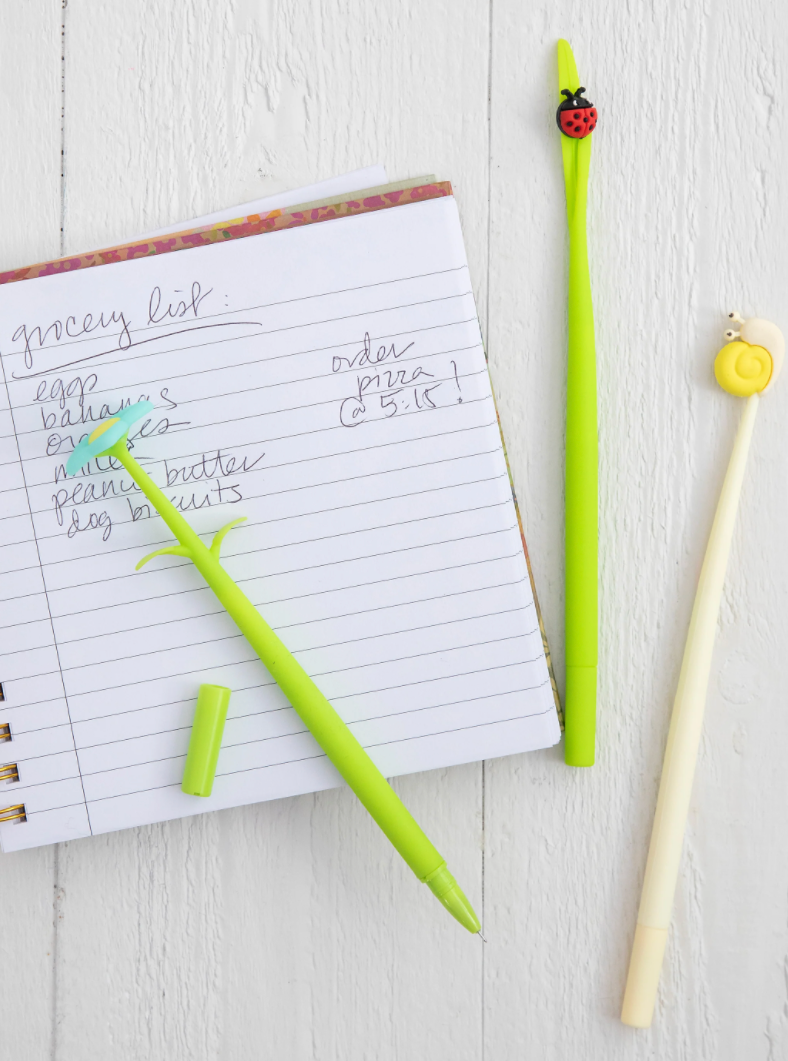 grocery list:
eggs
bananas
oranges
milk
peanut butter
dog biscuits
order
pizza
@ 5:15!